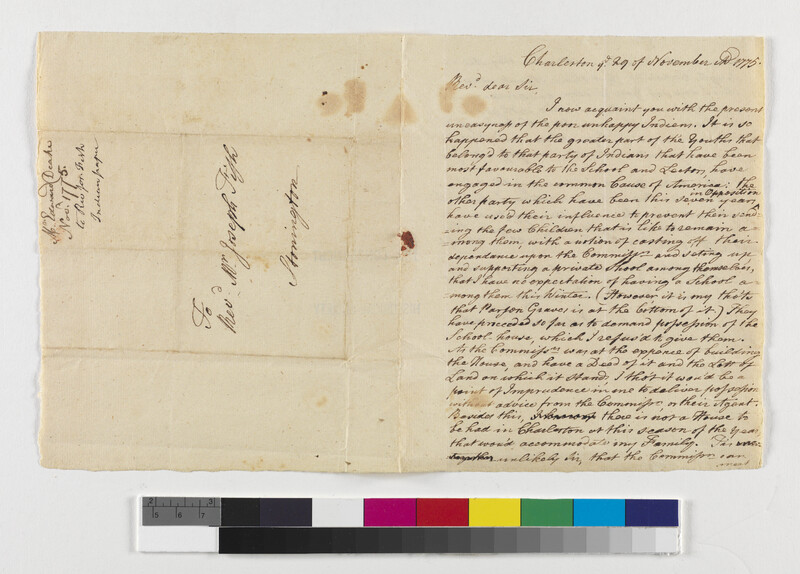 Mr Edward Deake
Nov. 1775.
to Rev Jos. Fish
Indian paper
To
Revd. Mr Joseph Fish
Stonington
Charleston ye 29 of November AD 1775.
Revd dear Sir,
I now acquaint you with the present
uneasyness of the poor unhappy Indians. It is so
happened that the greater part of the Youths that
belong'd to that party of Indians that have been
most favourable to the School and Lector, have
engaged in the common Cause of America: the
other party which have been this seven years in Opposition
have used their influence to prevent their send=
=ing the few Children that is like to remain a=
=mong them, with a notion of casting off their
dependance upon the Commissrs and seting up,
and supporting a private School among themselves,
that I have no expectation of having a School a=
mong them this Winter. (However it is my thots
that Parson Graves is at the bottom of it.) They
have proceeded so far as to demand possession of the
School house, which I refus'd to give them.
As the Commissrs was at the expence of building
the House, and have a Deed of it and the Lott of
Land on which it Stands, I thot it wou'd be a
point of Imprudence in me to deliver possession
without advice from the Commissrs or their Agent.
Besides this, there is not a House to
be had in Charleston at this season of the Year
that wou'd accommodate my Family. Tis
unlikely Sir, that the Commissrs can
meet